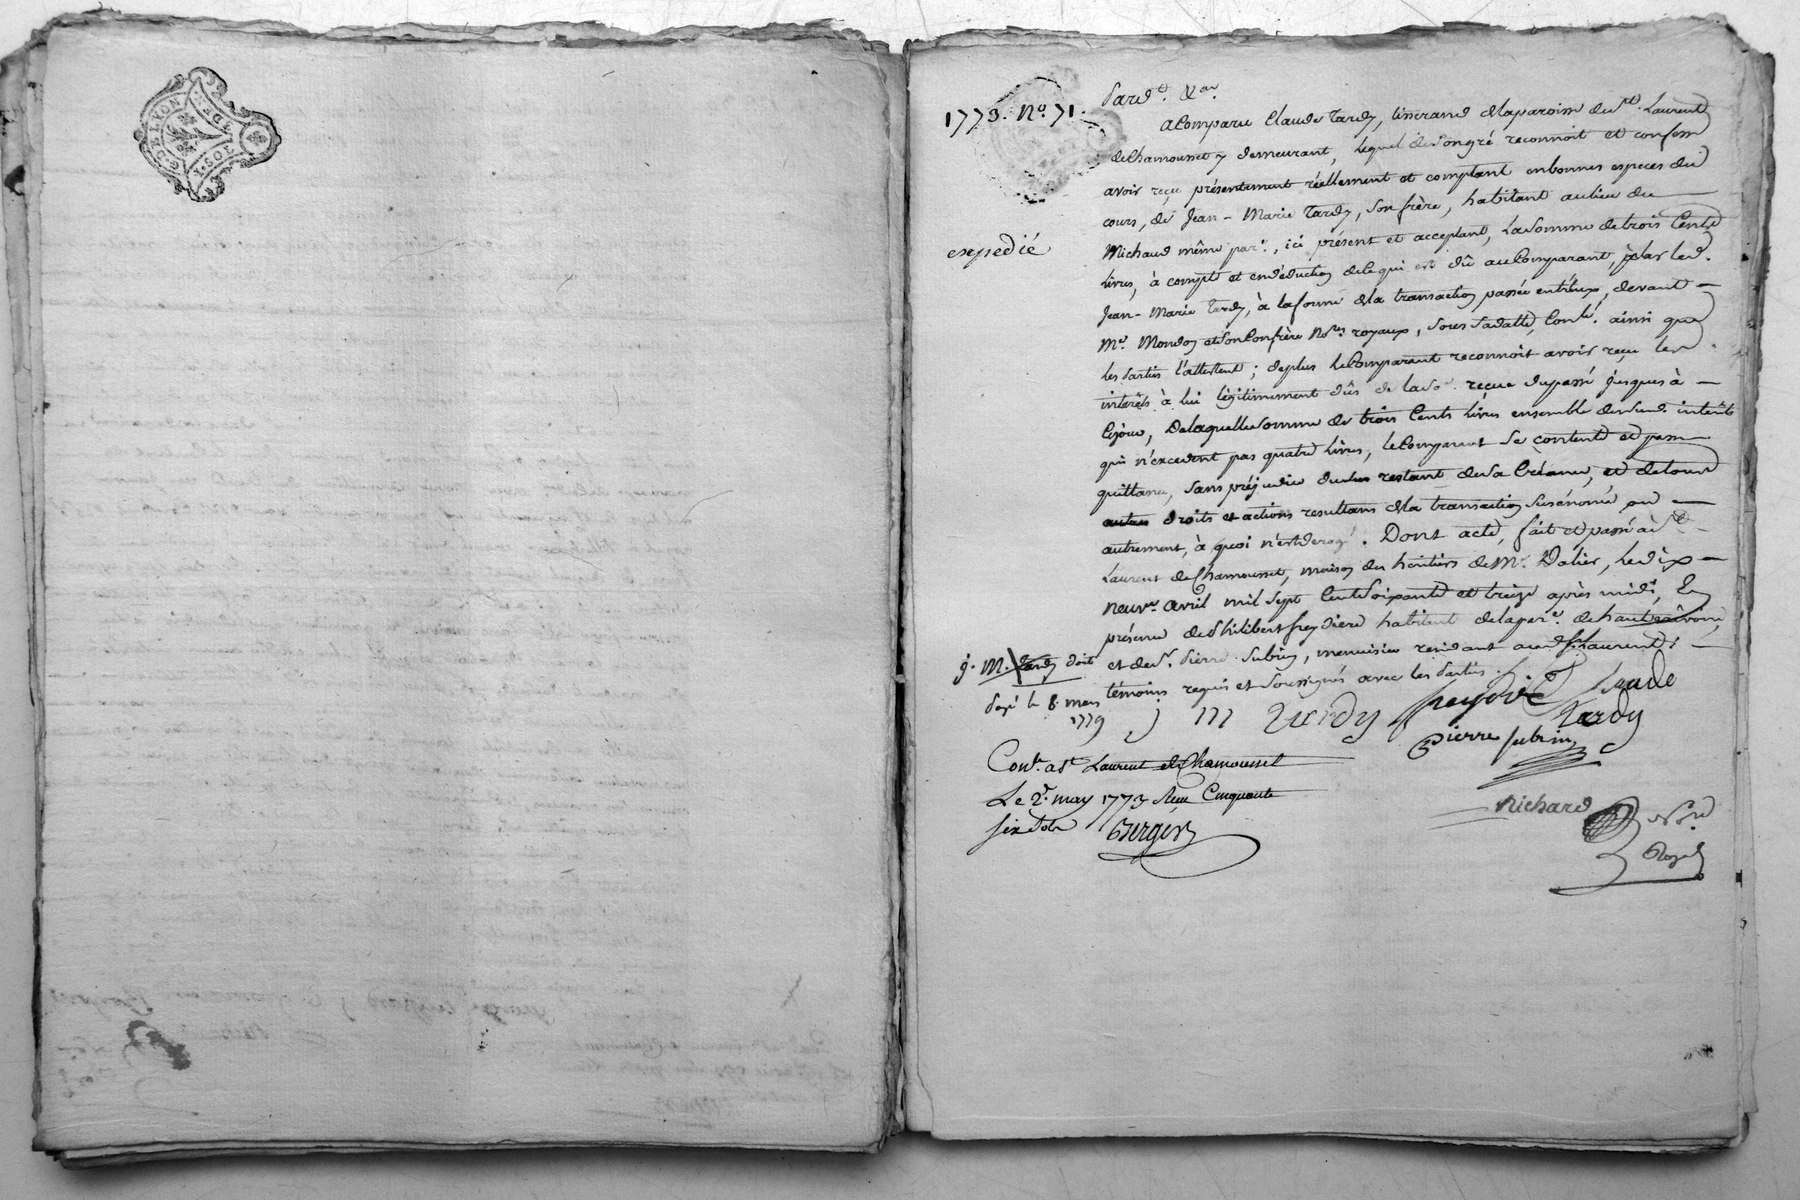 G. DE LYON
1. SOL
2. DEN
1773. N.º 71.
expedié
Pard.t &ar
a Comparu Claude Tardy, tisserand de la paroisse de St. Laurent
de Chamousset y demeurant, lequel de son gré reconnoit et confesse
avoir reçu présentement réellement et comptant en bonnes especes du
cours, de Jean-Marie Tardy, son frère, habitant au lieu du
Michaud même par.e, ici présent et acceptant, la somme de trois Cents
livres, à compte et en déduction de ce qui est dû au Comparant, par led.
Jean-Marie Tardy, à la forme de la transaction passée entr'eux, devant
Me. Mondon et son Confrère No.res royaux, sous sa datte, Conlé. ainsi que
les parties l'attestent; de plus le Comparant reconnoit avoir reçu les
interêts à lui légitimement dûs de lad. so. reçue du passé jusques à
Ce jour, De laquelle somme de trois Cents livres ensemble desd. interêts
qui n'excedent pas quatre livres, le Comparant se contente et passe
quittance, sans préjudice du restant de sa Créance, et de tous
autres droits et actions resultans de la transaction susénoncée ou
autrement, à quoi n'est derogé. Dont acte, fait et passé à St.
Laurent de Chamousset, maison des héritiers de Mr. Dalier, le dix
neuv.e avril mil sept Cent soixante et treize après midi, En
présence de Philibert freydiere habitant de la par.e de hauterivoire,
et de Sr. Pierre Subrin, menuisier residant aud. St. Laurent;
témoins requis et soussignés avec les parties.
J. M. Tardy doit
payé le 8. mars
1779
j m Tardy freydiere Claude
Tardy
Pierre subrin
Con.lé a St. Laurent de Chamousset
Le 2.e may 1773 Reçu Cinquante
six sols
Berger
Richard
No.re
Royal